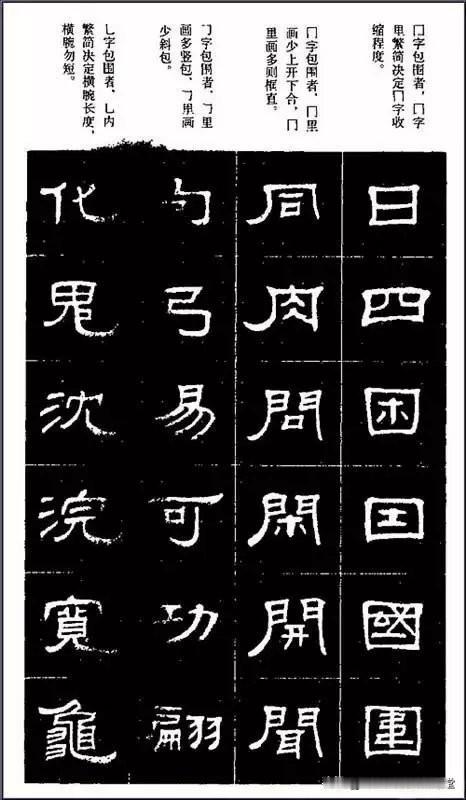 囗字包围者，囗字
里繁简决定囗字收
缩程度。
冂字包围者，冂里
画少上开下合，冂
里画多则框直。
㇆字包围者，㇆里
画多竖包，㇆里画
少斜包。
乚字包围者，乚内
繁简决定横腕长度，
横腕勿短。
日四困国國圍
同肉問閑開聞
勺弓易可功翩
化鬼沈浣寬龜
堂